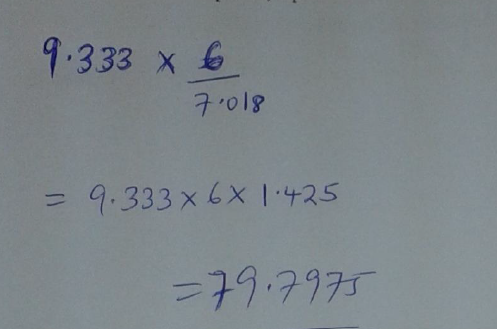 9.333 × 6
7.018
= 9.333 × 6 × 1.425
= 79.7975